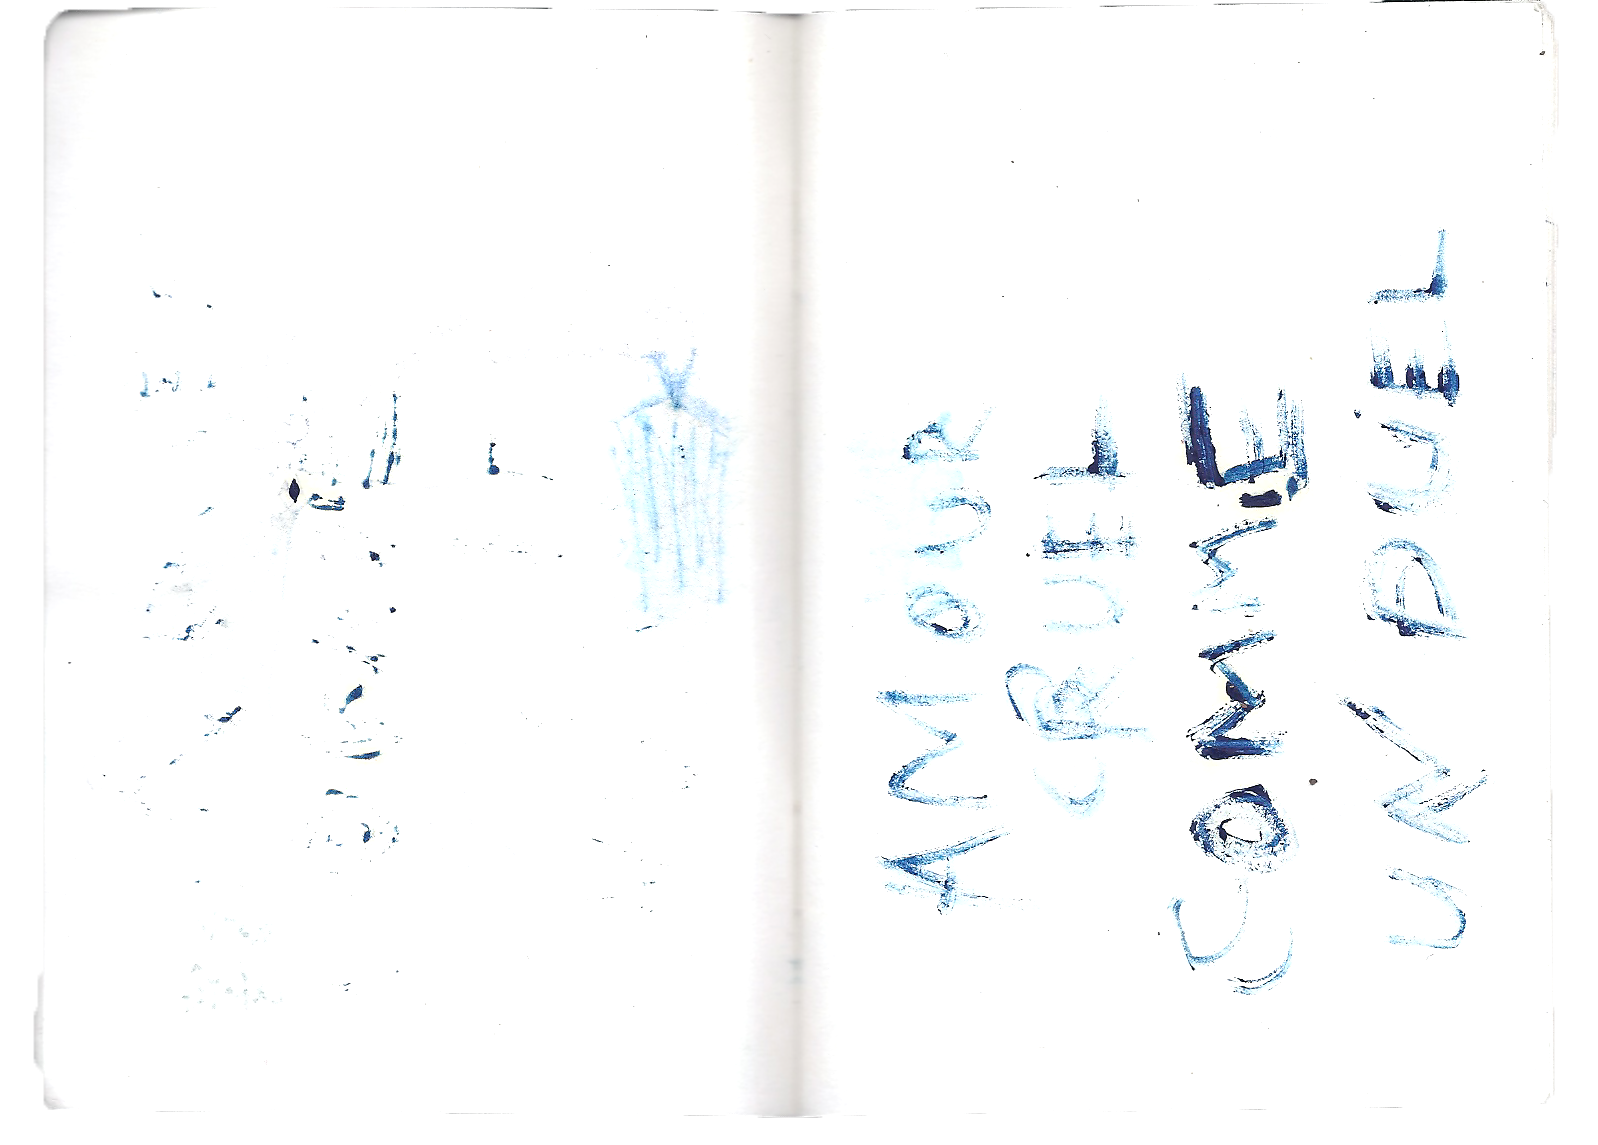 AMOUR
CRUEL
COMME
UN DUEL